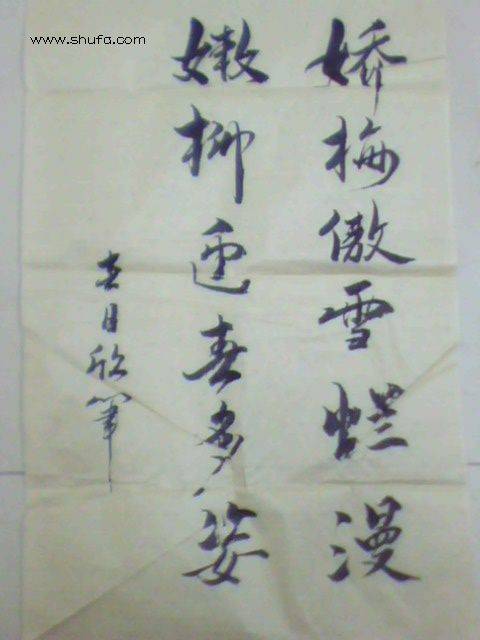 www.shufa.com
娇梅傲雪烂漫
嫩柳迎春多姿
日欣筆